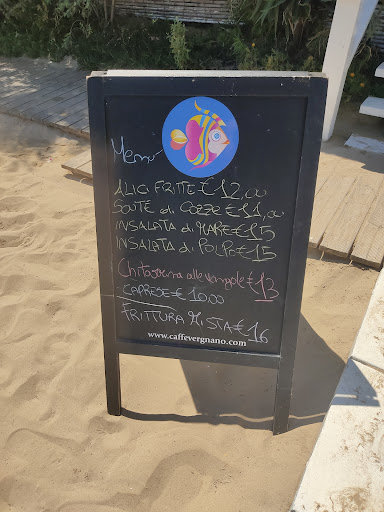 Menu
ALICI FRITTE €12,00
SOUTÈ di COZZE €11,00
INSALATA di MARE €15
INSALATA di POLPO €15
Chitarrina alle vongole €13
CAPRESE €10,00
FRITTURA MISTA €16
www.caffevergnano.com